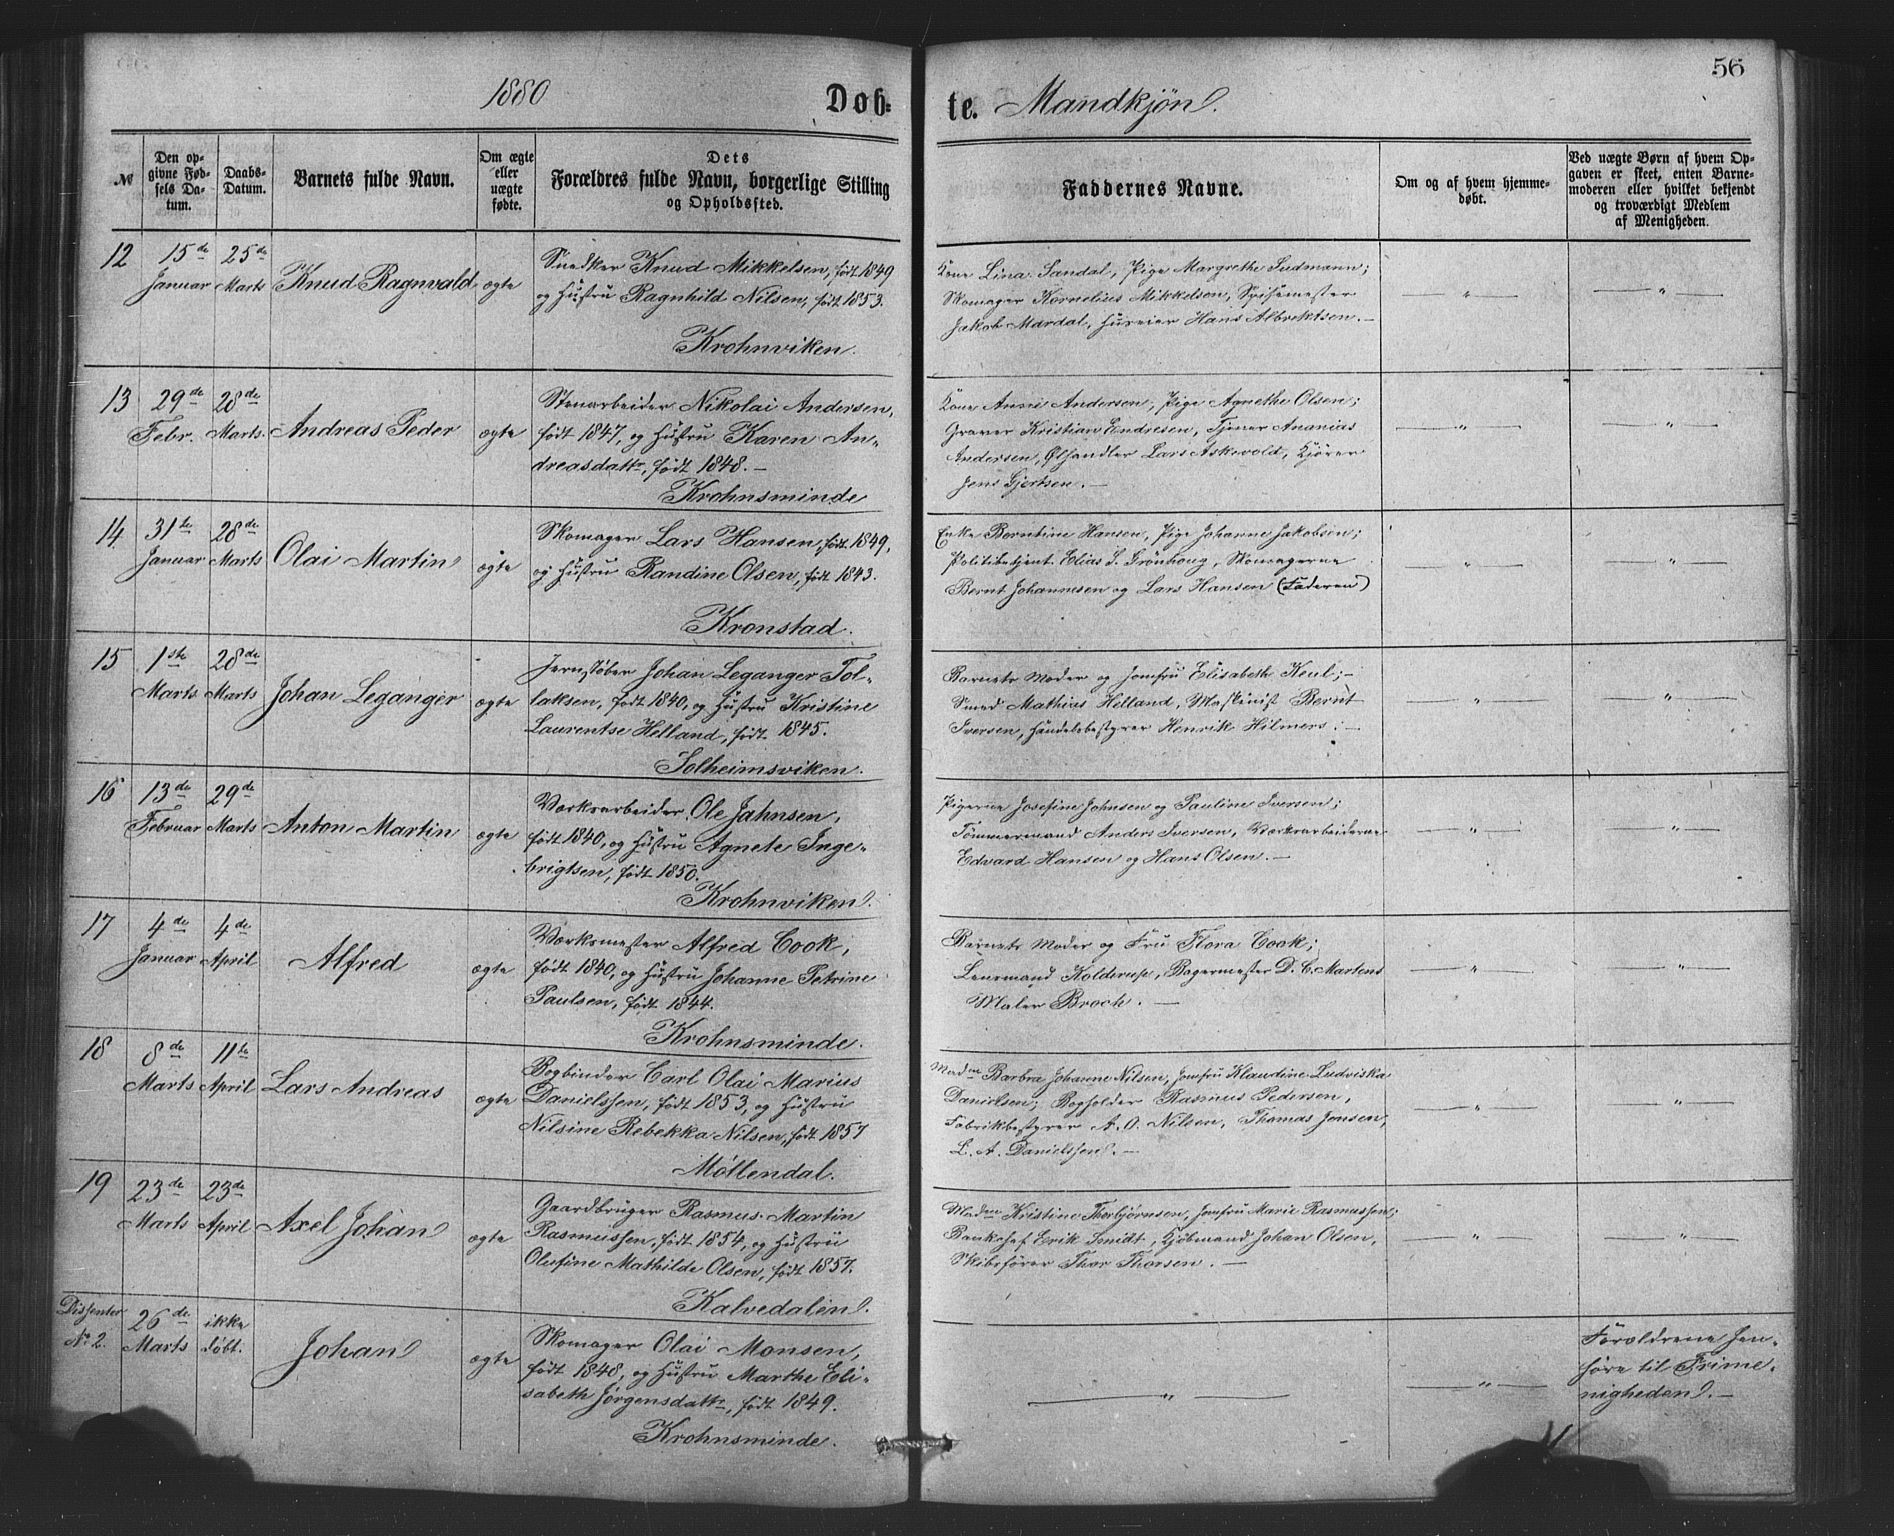 56
1880 Døb- te. Mandkjøn.
№
Den op-
givne Fød-
sels Da-
tum.
Daabs-
Datum.
Barnets fulde Navn.
Om ægte
eller
uægte
fødte.
Dets
Forældres fulde Navn, borgerlige Stilling
og Opholdssted.
Faddernes Navne.
Om og af hvem hjemme-
døbt.
Ved uægte Børn af hvem Op-
gaven er skeet, enten Barne-
moderen eller hvilket bekjendt
og troværdigt Medlem
af Menigheden.
12
15de
Januar
25de
Marts
Knud Ragnvald
ægte
Snedker Knud Mikkelsen, født 1849
og Hustru Ragnhild Nilsen, født 1853.
Krohnviken.
Kone Lina Sandal, Pige Margrethe Ludmann;
Skomager Kornelius Mikkelsen, Spisemester
Jakob Mardal, Huseier Hans Albrektsen. —
— " —
— " —
13
29de
Febr.
28de
Marts.
Andreas Peder
ægte
Stenarbeider Nikolai Andersen,
født 1847, og Hustru Karen An-
dreasdattr, født 1848. —
Krohnsminde
Kone Anne Andersen, Pige Agnethe Olsen;
Graver Kristian Endresen, Tjener Ananias
Andersen, Ølhandler Lars Askevold, Kjører
Jens Gjertsen. —
— " —
— " —
14.
31te
Januar
28de
Marts
Olai Martin
ægte
Skomager Lars Hansen, født 1849,
og Hustru Randine Olsen, født 1843.
Kronstad.
Enke Berntine Hansen, Pige Johanne Jakobsen;
Politibetjent Elias S. Grönhoug, Skomagerne
Bernt Johannesen og Lars Hansen (Faderen)
— " —
— " —
15
1ste
Marts
28de
Marts
Johan Leganger
ægte
Jernstøber Johan Leganger Tol-
laksen, født 1840, og Hustru Kristine
Laurentse Helland, født 1845.
Solheimsviken.
Barnets Moder og Jomfru Elisabeth Keul; —
Smed Mathius Helland, Maskinist Bernt
Iversen, Handelsbestyrer Henrik Hilmers. —
— " —
— " —
16
13de
Februar
29de
Marts
Anton Martin
ægte
Værksarbeider Ole Jahnsen,
født 1840, og Hustru Agnete Inge-
brigtsen, født 1850.
Krohnviken.
Pigerne Josefine Johnsen og Pauline Iversen;
Tømmermand Anders Iversen, Værksarbeiderne
Edvard Hansen og Hans Olsen. —
— " —
— " —
17
4de
Januar
4de
April
Alfred
ægte
Værksmester Alfred Cook,
født 1840, og Hustru Johanne Petrine
Paulsen, født 1844.
Krohnsminde.
Barnets Moder og Fru Flora Cook;
Lensmand Kolderup, Bagermester D. C. Martens
Maler Broch. —
— " —
— " —
18
8de
Marts
11te
April
Lars Andreas
ægte
Bogbinder Carl Olai Marius
Danielssen, født 1853, og Hustru
Nilsine Rebekka Nilsen, født 1857
Møllendal.
Madme Barbra Johanne Nilsen, Jomfru Klaudine Ludviska
Danielsen; Bogholder Rasmus Pedersen,
Fabrikbestyrer A. O. Nilsen, Thomas Jensen,
L. A. Danielssen. —
— " —
— " —
19
23de
Marts
23de
April
Axel Johan
ægte
Gaardbruger Rasmus Martin
Rasmussen, født 1854, og Hustru
Olufine Mathilde Olsen, født 1857.
Kalvedalen.
Madme Kristine Thorbjørnsen, Jomfru Marie Rasmussen;
Bankchef Erik Smidt, Kjøbmand Johan Olsen,
Skibsfører Thor Thorsen. —
— " —
— " —
Dissenter
No 2.
26de
Marts
ikke
døbt.
Johan
ægte
Skomager Olai Monsen,
født 1848, og Hustru Marthe Eli-
sabeth Jørgensdattr, født 1849.
Krohnsminde.
— " —
— " —
Forældrene hen-
høre til Frime-
nigheden. —